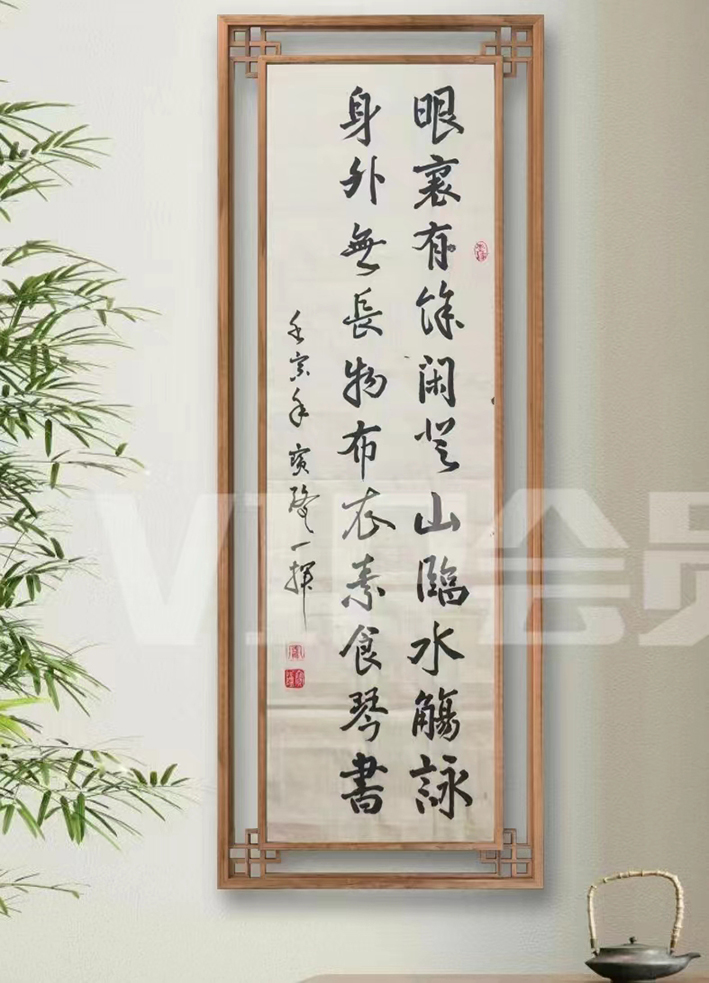 眼裏有餘閑登山臨水觴詠
身外無長物布衣素食琴書
壬寅年 寅隆一揮
VIP会员